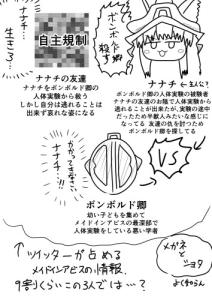 ナナチ…
生きろ…
自主規制
ボンボルド卿
殺す
ナナチの友達
ナナチをボンボルド卿の
人体実験から救う
しかし自分は逃れることは
出来ず哀れな姿になる
ナナチ ←主人公?
ボンボルド卿の人体実験の被験者
ナナチの友達のお陰で人体実験から
逃れることが出来たが、実験の途中
だったため半獣人みたいな感じに
なってる 友達の仇を討つため
ボンボルド卿を探してる
かかってきなさい
ナナチ…!!
VS
ボンボルド卿
幼い子どもを集めて
メイドインアビスの最深部で
人体実験をしている悪い学者
ツイッターが占める
メイドインアビスの情報、
9割くらいこの3人では…?
メガネ
と
ショタ
よく知らん